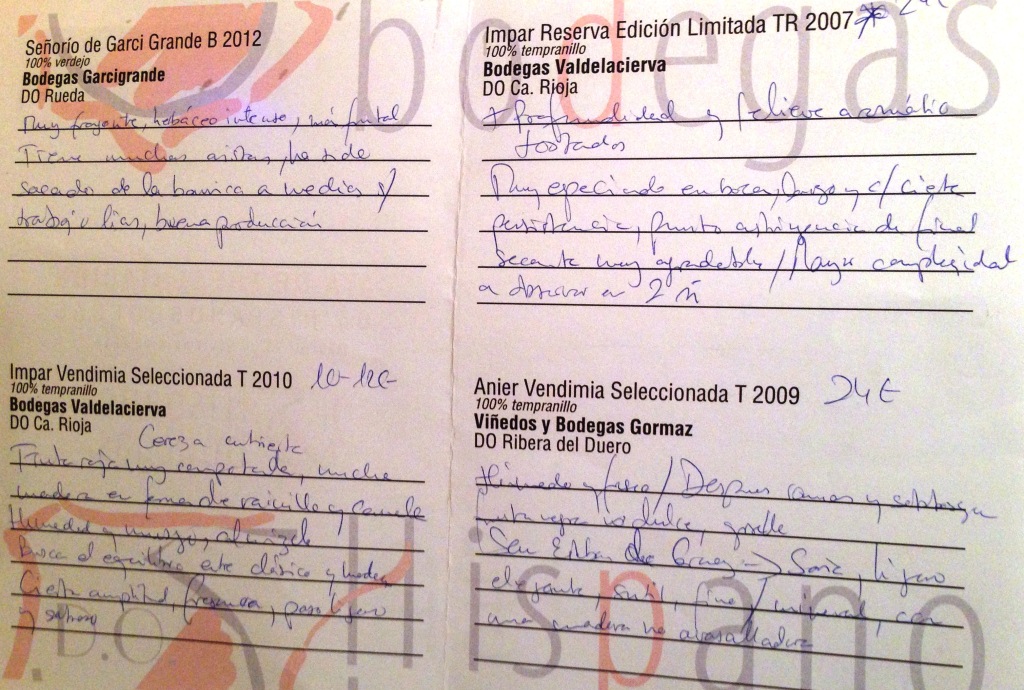 bodegas
Señorío de Garci Grande B 2012
100% verdejo
Bodegas Garcigrande
DO Rueda
Muy fragante, hebáceo intenso, más frutal
Tiene muchas aristas, ha sido
sacado de la barrica a medias s/
trabajo lías, buena producción
Impar Reserva Edición Limitada TR 2007
100% tempranillo
Bodegas Valdelacierva
DO Ca. Rioja
+ Profundidad y relieve aromático
tostados
Muy especiado en boca, largo y c/ cierta
persistencia, punto astringencia de final
secante muy agradable / Mayor complejidad
a en 2
Impar Vendimia Seleccionada T 2010 10-12€
100% tempranillo
Bodegas Valdelacierva
DO Ca. Rioja
Cereza cubierta
Fruta roja muy compotada, mucha
madera en forma de vainilla y canela
Humedad y musgo, almizcle
Busca el equilibrio entre clásico y moderno
Cierta amplitud, frescura, paso ligero
y sabroso
Anier Vendimia Seleccionada T 2009 24€
100% tempranillo
Viñedos y Bodegas Gormaz
DO Ribera del Duero
Húmedo y fresco / Después
fruta negra dulce, grosella
ligero
elegante, sutil, fino / mineral, con
una madera no avasalladora
D.O.
Hispano